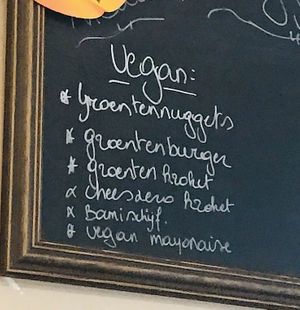 Vegan:
* Groentennuggets
* groentenburger
* groenten kroket
* cheeszero kroket
* Bamischijf.
* vegan mayonaise